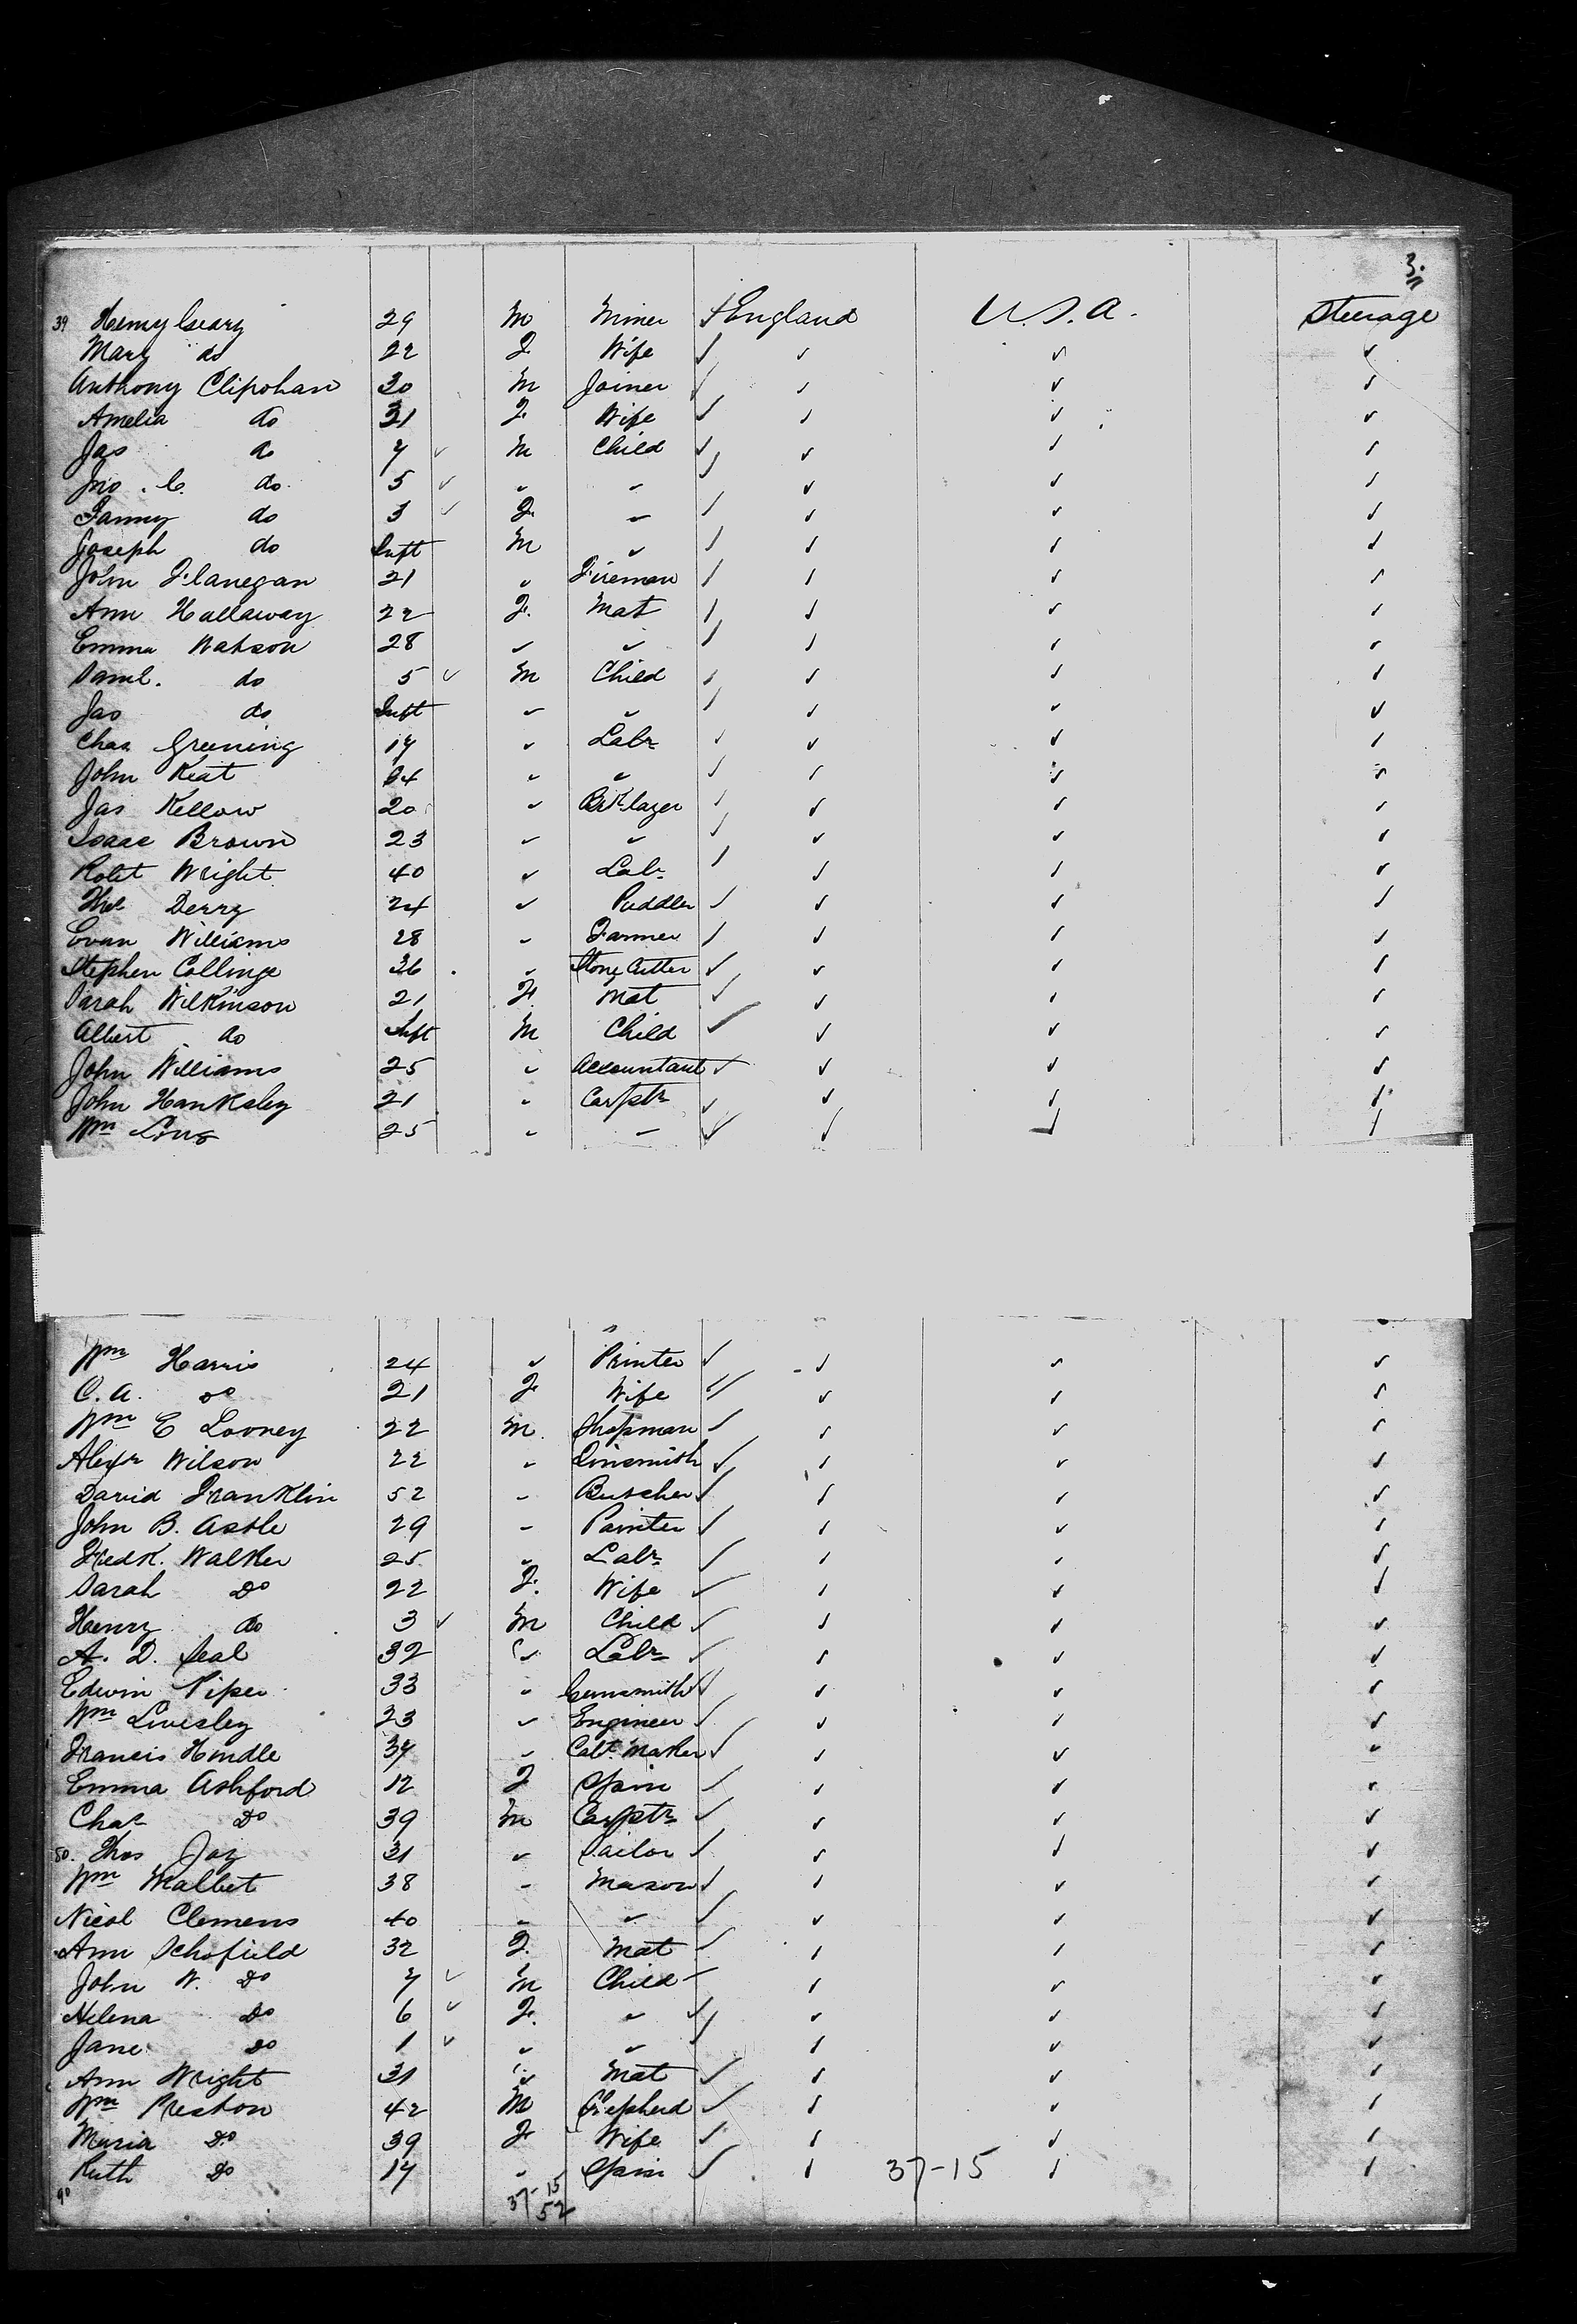 3.
39 Henry Geary 29 M Miner ✓ England U.S.A. Steerage
Mary do 22 F Wife ✓ ✓ ✓ ✓
Anthony Clipohan 30 M Joiner ✓ ✓ ✓ ✓
Amelia do 31 F Wife ✓ ✓ ✓ ✓
Jas do 7 ✓ M Child ✓ ✓ ✓ ✓
Jno. C. do 5 ✓ " " ✓ ✓ ✓ ✓
Fanny do 3 ✓ F " ✓ ✓ ✓ ✓
Joseph do Inft M " ✓ ✓ ✓ ✓
John Flanegan 21 " Fireman ✓ ✓ ✓ ✓
Ann Hallaway 22 F. Mat ✓ ✓ ✓ ✓
Emma Watson 28 " " ✓ ✓ ✓ ✓
Saml. do 5 ✓ M Child ✓ ✓ ✓ ✓
Jas do Inft " " ✓ ✓ ✓ ✓
Chas Greening 17 " Labr ✓ ✓ ✓ ✓
John Keat " " ✓ ✓ ✓ ✓
Jas Kellow 20 " Bklayer ✓ ✓ ✓ ✓
Isaac Brown 23 " " ✓ ✓ ✓ ✓
Robt Wright 40 " Labr ✓ ✓ ✓ ✓
Derry 24 " Puddler ✓ ✓ ✓ ✓
Evan Williams 28 " Farmer ✓ ✓ ✓ ✓
Stephen Collinge 36 " Stone Cutter ✓ ✓ ✓ ✓
Sarah Wilkinson 21 F Mat ✓ ✓ ✓ ✓
Albert do Inft M Child ✓ ✓ ✓ ✓
John Williams 25 " Accountant ✓ ✓ ✓ ✓
John Hanksley 21 " Carptr ✓ ✓ ✓ ✓
Wm 25 " " ✓ ✓ ✓ ✓
Wm Harris 24 " Printer ✓ ✓ ✓ ✓
C. A. do 21 F Wife ✓ ✓ ✓ ✓
Wm E Looney 22 M Shopman ✓ ✓ ✓ ✓
Alexr Wilson 22 " Tinsmith ✓ ✓ ✓ ✓
David Franklin 52 " Butcher ✓ ✓ ✓ ✓
John B. Astle 29 " Painter ✓ ✓ ✓ ✓
Fredk. Walker 25 " Labr ✓ ✓ ✓ ✓
Sarah Do 22 F. Wife ✓ ✓ ✓ ✓
Henry do 3 ✓ M Child ✓ ✓ ✓ ✓
A. D. Seal 32 " Labr ✓ ✓ ✓ ✓
Edwin Piper 33 " Gunsmith ✓ ✓ ✓ ✓
Wm Livesley 23 " Engineer ✓ ✓ ✓ ✓
Francis Hindle 37 " Cabt. Maker ✓ ✓ ✓ ✓
Emma Ashford 12 F Spin ✓ ✓ ✓ ✓
Chas Do 39 M Carptr ✓ ✓ ✓ ✓
80. Thos Joy 31 " Tailor ✓ ✓ ✓ ✓
Wm Mallet 38 " Mason ✓ ✓ ✓ ✓
Nicol Clemens 40 " " ✓ ✓ ✓ ✓
Ann Schofield 32 F. Mat ✓ ✓ ✓ ✓
John W. Do 7 ✓ M Child ✓ ✓ ✓ ✓
Helena Do 6 ✓ F. " ✓ ✓ ✓ ✓
Jane Do 1 ✓ " " ✓ ✓ ✓ ✓
Ann Wright 31 " Mat ✓ ✓ ✓ ✓
Wm Preston 42 M Shepherd ✓ ✓ ✓ ✓
Maria Do 39 F Wife ✓ ✓ ✓ ✓
Ruth Do 17 " Spin ✓ ✓ 37-15 ✓ ✓
90 37-15
52